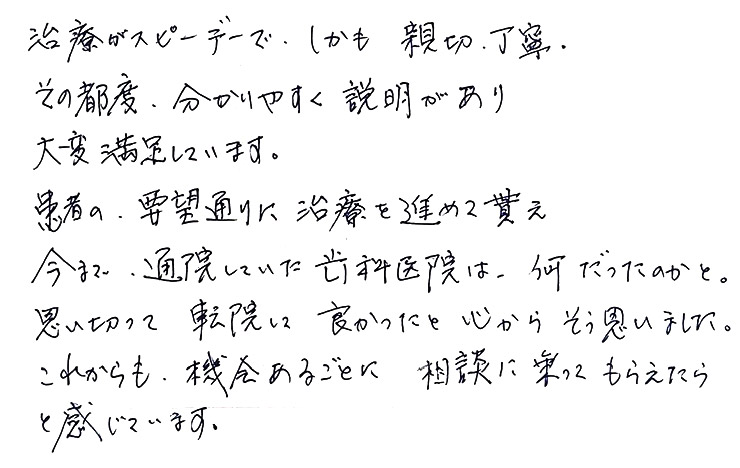 治療がスピーデーで、しかも 親切、丁寧。
その都度、分かりやすく 説明があり
大変満足しています。
患者の、要望通りに 治療を進めて貰え
今まで、通院していた 歯科医院は、何だったのかと。
思い切って 転院して 良かったと 心から そう思いました。
これからも、機会あるごとに 相談に乗って もらえたら
と感じています。